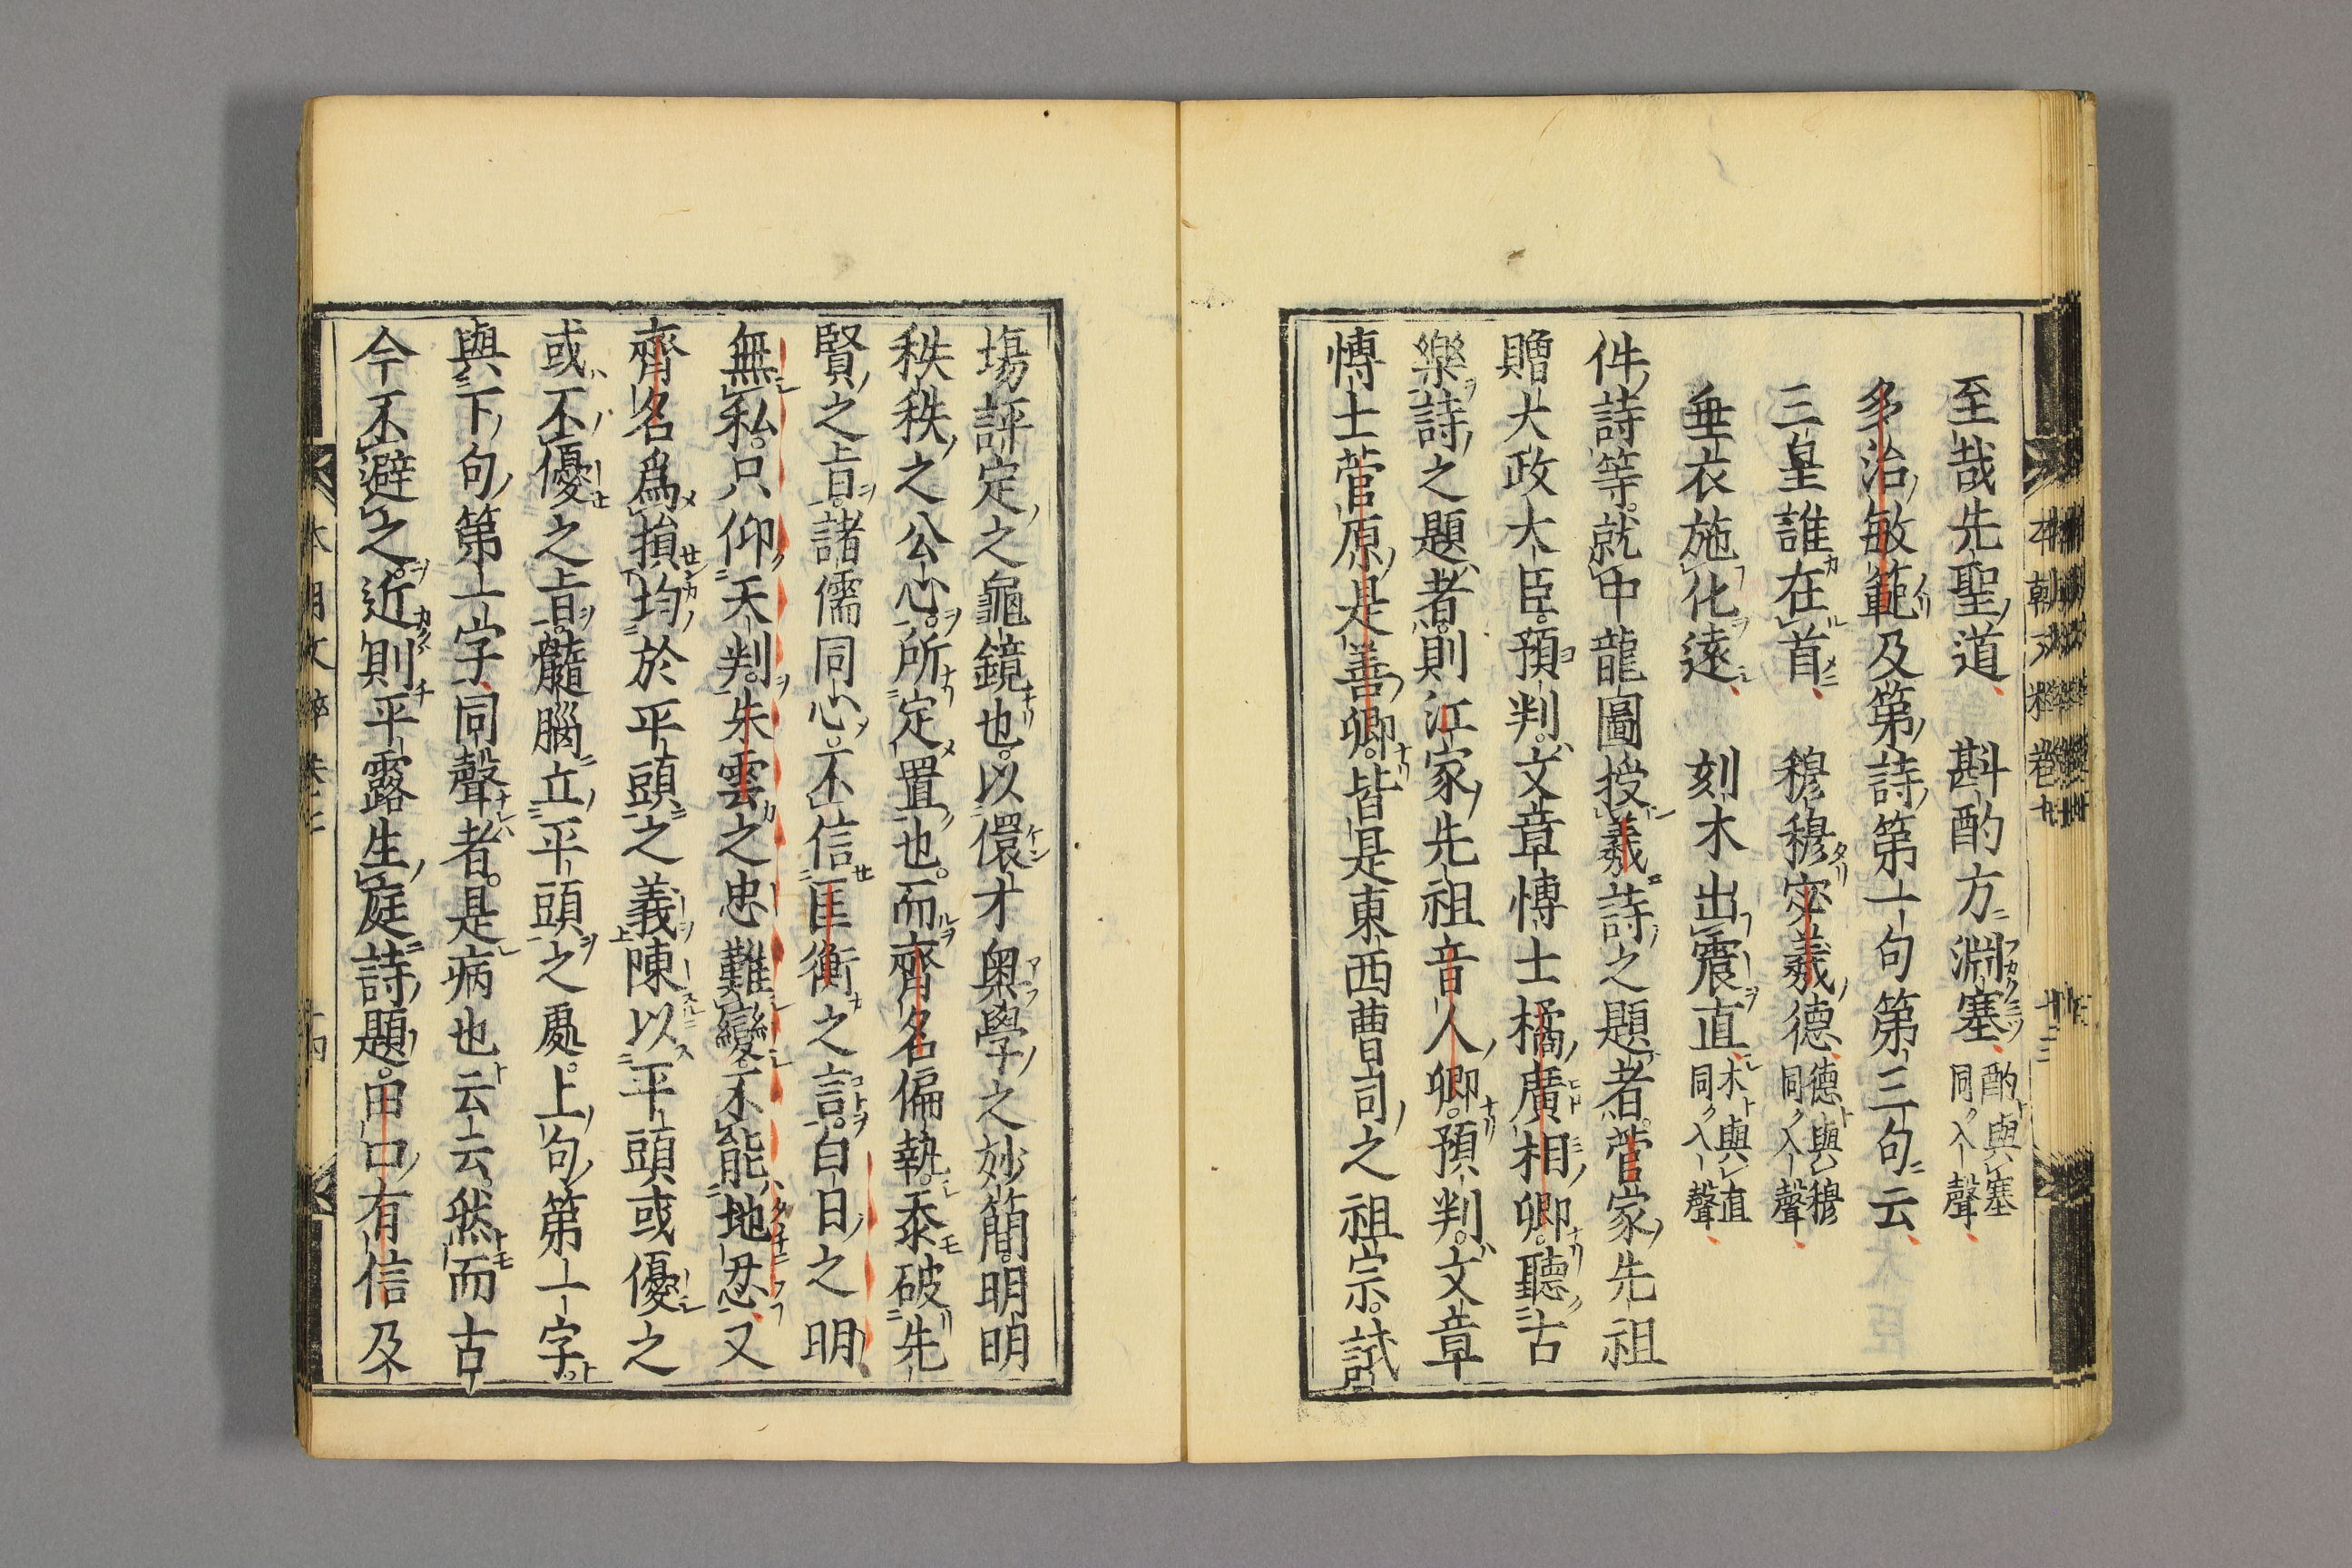 至哉先聖道　斟酌方淵塞 酌與塞同入聲
多治敏範及第詩第一句第三句云
三皇誰在首　穆穆宓羲德 德與穆同入聲
垂衣施化遠　刻木出震直 木與直同入聲
件詩等就中龍圖授羲詩之題者菅家先祖
贈大政大臣預判文章博士橘廣相卿聽古
樂詩之題者則江家先祖音人卿預判文章
博士菅原是善卿皆是東西曹司之祖宗試
場評定之龜鏡也以儇才奥學之妙簡明明
秩秩之公心所定置也而齊名偏執忝破先
賢之旨諸儒同心不信匡衡之言白日之明
無私只仰天判朱雲之忠難變不能地忍又
齊名爲損均於平頭之義陳以平頭或優之
或不優之旨髓腦立平頭之處上句第一字
與下句第一字同聲者是病也云云然而古
今不避之近則平露生庭詩題田口有信及